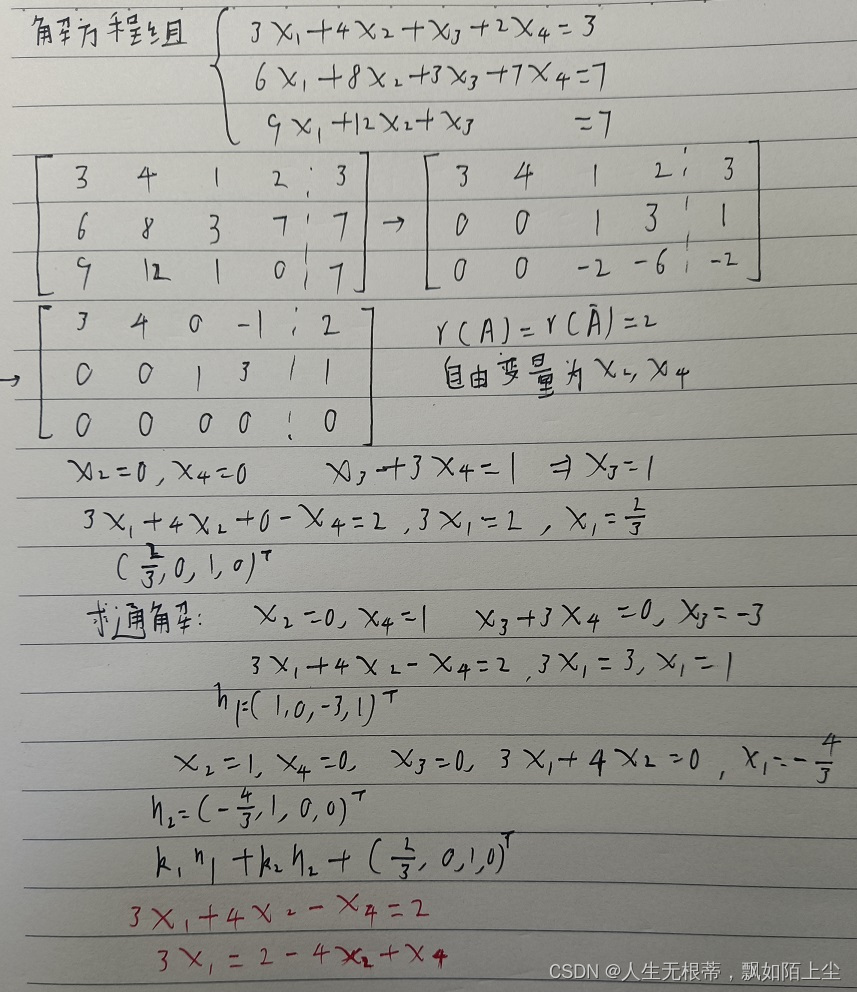 解方程组 { 3x₁+4x₂+x₃+2x₄=3
6x₁+8x₂+3x₃+7x₄=7
9x₁+12x₂+x₃ =7
[ 3 4 1 2 ¦ 3 ] → [ 3 4 1 2 ¦ 3 ]
[ 6 8 3 7 ¦ 7 ] [ 0 0 1 3 ¦ 1 ]
[ 9 12 1 0 ¦ 7 ] [ 0 0 -2 -6 ¦ -2 ]
→ [ 3 4 0 -1 ¦ 2 ] r(A)=r(Ā)=2
[ 0 0 1 3 ¦ 1 ] 自由变量为x₂,x₄
[ 0 0 0 0 ¦ 0 ]
x₂=0,x₄=0 x₃+3x₄=1 ⇒x₃=1
3x₁+4x₂+0-x₄=2,3x₁=2,x₁=2/3
(2/3,0,1,0)ᵀ
求通解: x₂=0,x₄=1 x₃+3x₄=0,x₃=-3
3x₁+4x₂-x₄=2,3x₁=3,x₁=1
η₁=(1,0,-3,1)ᵀ
x₂=1,x₄=0, x₃=0, 3x₁+4x₂=0,x₁=-4/3
η₂=(-4/3,1,0,0)ᵀ
k₁η₁+k₂η₂+(2/3,0,1,0)ᵀ
3x₁+4x₂-x₄=2
3x₁=2-4x₂+x₄
CSDN @人生无根蒂,飘如陌上尘